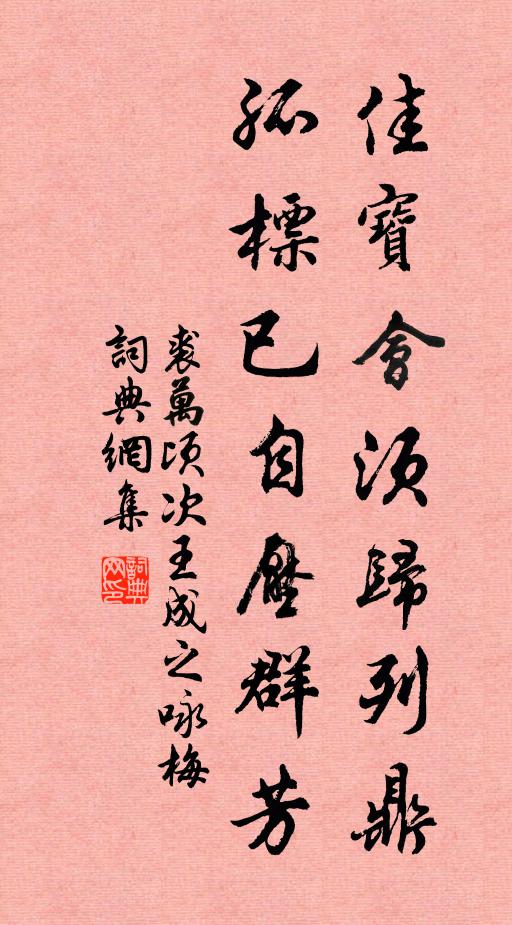 佳寶會須歸列鼎
孤標已自壓群芳
裘萬頃次王成之咏梅
詞典網集
詞典網印